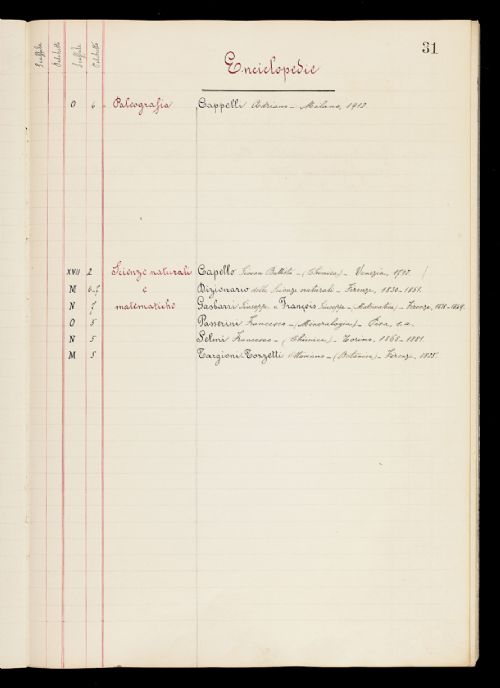 31
Scaffale Palchetto Scaffale Palchetto
Enciclopedie
O 6 Paleografia Cappelli Adriano - Milano, 1912
XVII 2 Scienze naturali Capello Giovan Battista - (Chimica) - Venezia,
M 6-7 e Dizionario delle Scienze naturali - Firenze, 1830-1851.
N 7 matematiche Gasbarri Giuseppe e François Giuseppe - Matematica) - Firenze,
O 5 Passerini Francesco - (Mineralogia) - Pisa, s.a.
N 5 Selmi Francesco - (Chimica) - Torino, 1868-1881.
M 5 Targioni Tozzetti Ottaviano - (Botanica) - Firenze, 1825.